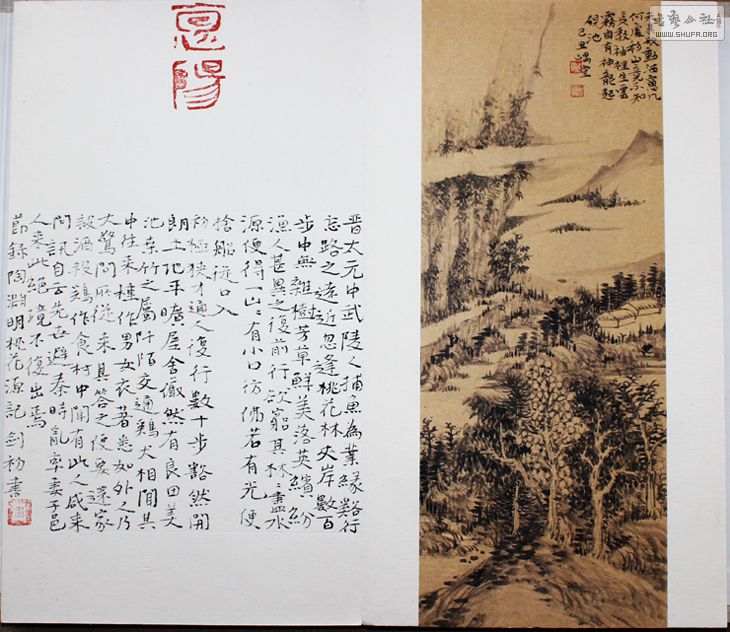 晋太元中武陵人捕魚為業緣谿行
忘路之遠近忽逢桃花林夾岸數百
步中無雜樹芳草鮮美落英繽紛
漁人甚異之復前行欲窮其林〻盡水
源便得一山〻有小口彷彿若有光便
捨船從口入
初極狹才通人復行數十步豁然開
朗土地平曠屋舍儼然有良田美
池桑竹之屬阡陌交通鷄犬相聞其
中往來種作男女衣著悉如外乃
大驚問所從來具答之便要還家
設酒殺鷄作食村中聞有此人咸來
問訊自云先世避秦時亂率妻子邑
人來此絕境不復出焉
節錄陶淵明桃花源記
何處移山
長教袖裡生雲
霧自有神龍起
硯池
己丑
書藝公社
WWW.SHUFA.ORG